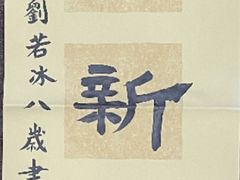 新
劉若冰八歲書